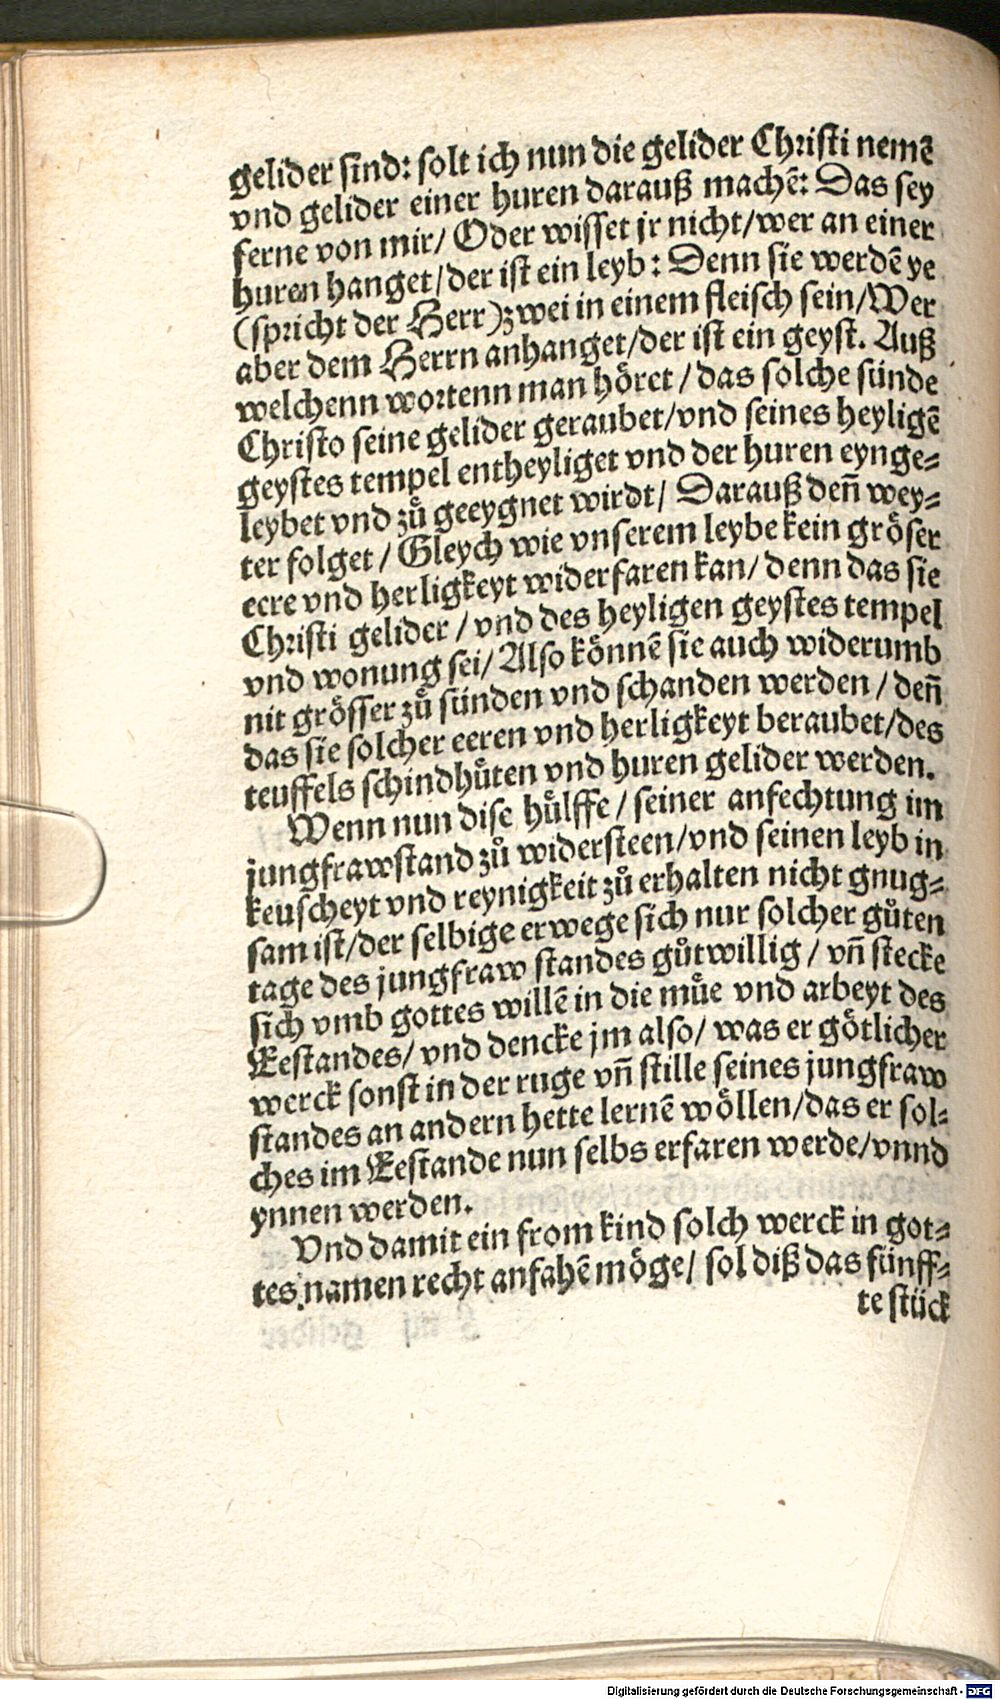 gelider sind: solt ich nun die gelider Christi nemẽ
vnd gelider einer huren darauß machẽ: Das sey
ferne von mir/ Oder wisset jr nicht/wer an einer
huren hanget/der ist ein leyb: Denn sie werdẽ ye
(spricht der Herr)zwei in einem fleisch sein/Wer
aber dem Herrn anhanget/der ist ein geyst. Auß
welchenn wortenn man höret/das solche sünde
Christo seine gelider geraubet/vnd seines heyligẽ
geystes tempel entheyliget vnd der huren eynge-
leybet vnd zů geeygnet wirdt/ Darauß den̄ wey-
ter folget/ Gleych wie vnserem leybe kein gröser
eere vnd herligkeyt widerfaren kan/ denn das sie
Christi gelider/vnd des heyligen geystes tempel
vnd wonung sei/Also könnẽ sie auch widerumb
nit grösser zů sünden vnd schanden werden/den̄
das sie solcher eeren vnd herligkeyt beraubet/des
teuffels schindhůten vnd huren gelider werden.
Wenn nun dise hülffe/seiner anfechtung im
jungfrawstand zů widersteen/vnd seinen leyb in
keuscheyt vnd reynigkeit zů erhalten nicht gnug-
sam ist/der selbige erwege sich nur solcher gůten
tage des jungfraw standes gůtwillig/vn̄ stecke
sich vmb gottes willẽ in die müe vnd arbeyt des
Eestandes/vnd dencke jm also/ was er götlicher
werck sonst in der ruge vn̄ stille seines jungfraw
standes an andern hette lernẽ wöllen/das er sol-
ches im Eestande nun selbs erfaren werde/vnnd
ynnen werden.
Vnd damit ein from kind solch werck in got-
tes namen recht anfahẽ möge/ sol diß das fünff-
te stück
Digitalisierung gefördert durch die Deutsche Forschungsgemeinschaft - DFG